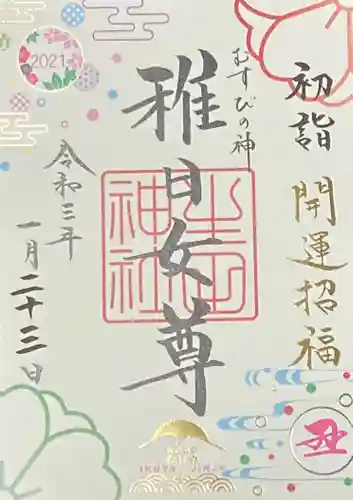 初詣 開運招福
むすびの神
稚日女尊
生田神社
2021
令和三年
一月二十三日
丑
IKUTA JINJA